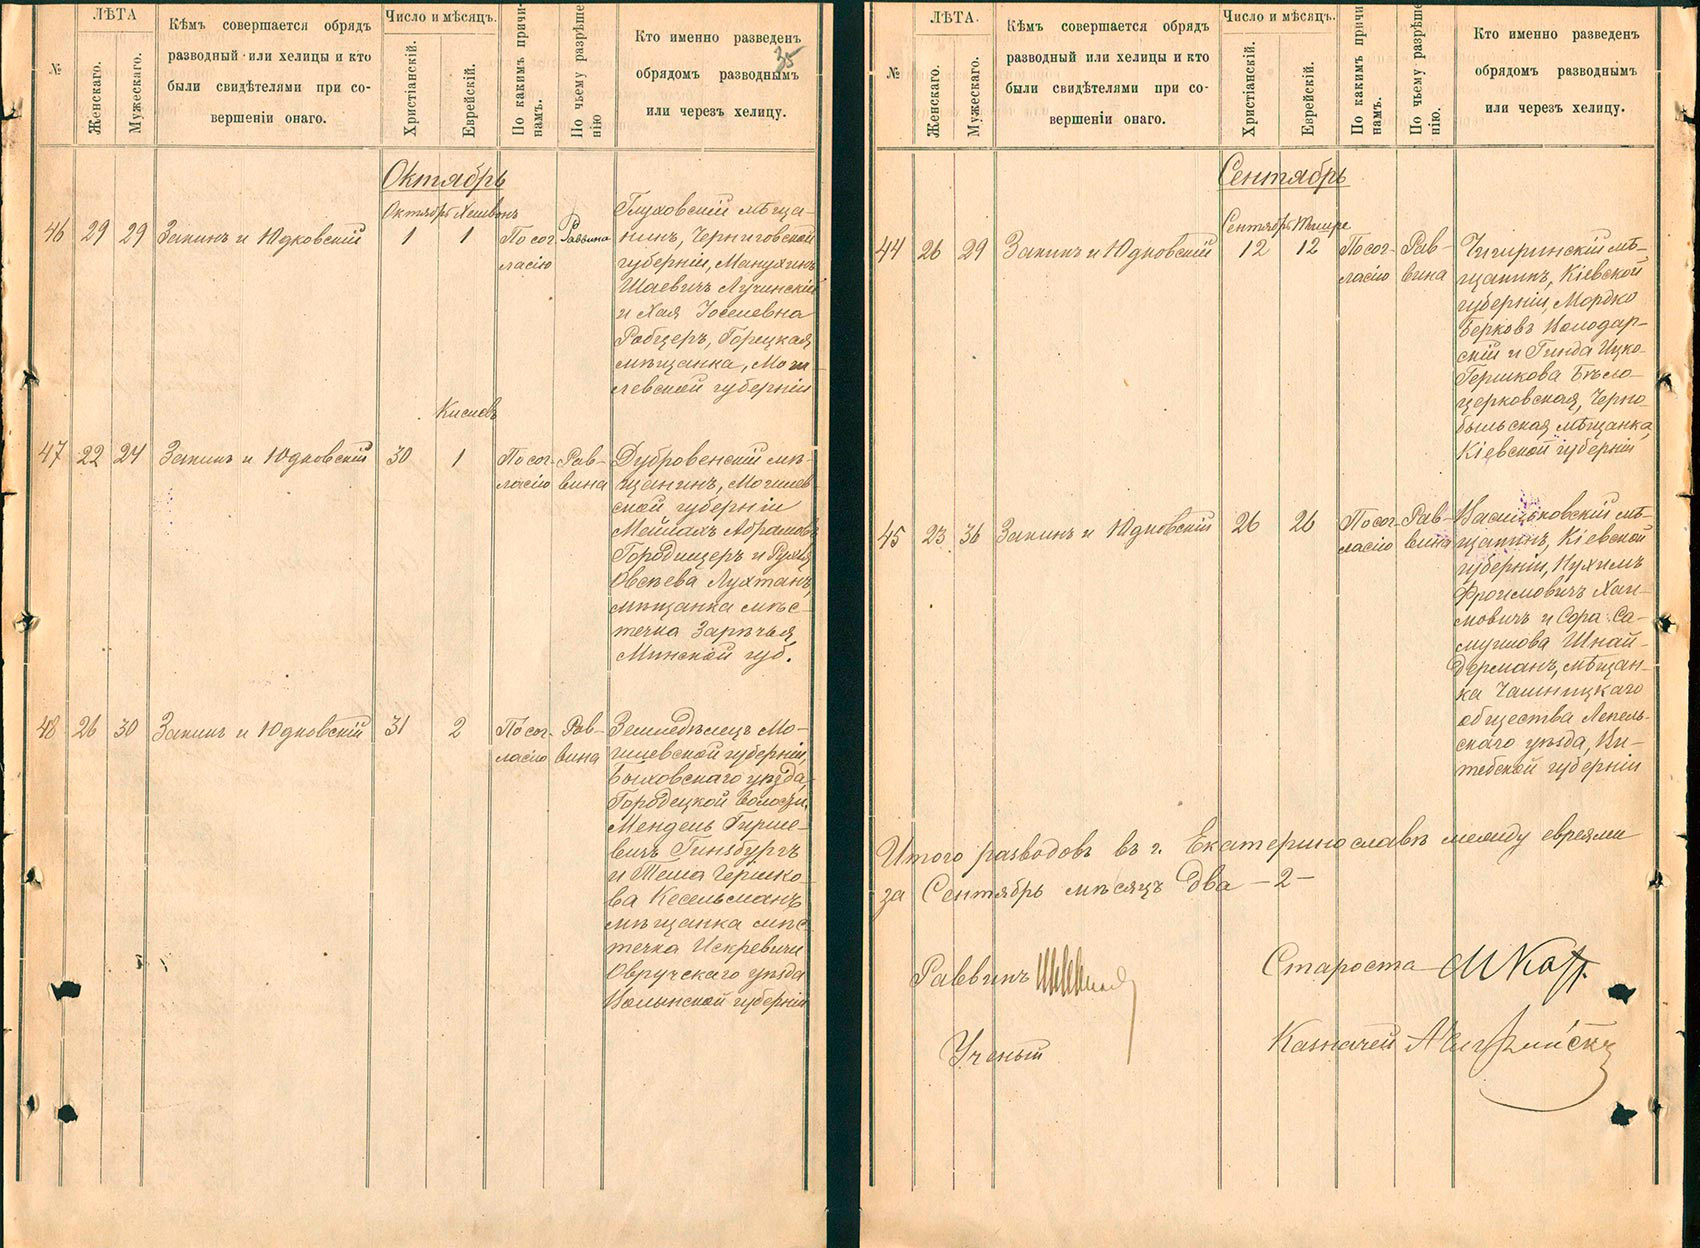 №
ЛѢТА
Женскаго.
Мужескаго.
Кѣмъ совершается обрядъ
разводный или хелицы и кто
были свидѣтелями при со-
вершеніи онаго.
Число и мѣсяцъ.
Христіанскій.
Еврейскій.
По какимъ причи-
намъ.
По чьему разрѣше
нію
Кто именно разведенъ
35
обрядомъ разводнымъ
или черезъ хелицу.
Октябрь
Октябрь Хешвонъ
46 29 29 Закинъ и Юдковскій 1 1 По сог-
ласію
Раввина
Глуховскій мѣща-
нинъ, Черниговской
губерніи, Манухинъ
Шаевичъ Лучинскій
и Хая Іоселевна
Рабцеръ, Горецкая
мѣщанка, Моги-
левской губерніи
Кислевъ
47 22 24 Закинъ и Юдковскій 30 1 По сог-
ласію
Рав-
вина
Дубровенскій мѣ-
щанинъ, Могилев
ской губерніи
Абрамовъ
Городищеръ и
Овсѣева Лухтанъ,
мѣщанка мѣс-
течка Зарѣчья
Минской губ.
48 26 30 Закинъ и Юдковскій 31 2 По сог-
ласію
Рав-
вина
Земледѣлецъ Мо-
гилевской губерніи,
Быховскаго уѣзда,
Городецкой волости,
Мендель Гирше-
вичъ Гинзбургъ
и Тема Гершко-
ва Кесельманъ
мѣщанка мѣс
течка Искревичи
Овручскаго уѣзда
Волынской губерніи
№
ЛѢТА.
Женскаго.
Мужескаго.
Кѣмъ совершается обрядъ
разводный или хелицы и кто
были свидѣтелями при со-
вершеніи онаго.
Число и мѣсяцъ.
Христіанскій.
Еврейскій.
По какимъ причи
намъ.
По чьему разрѣше
нію.
Кто именно разведенъ
обрядомъ разводнымъ
или черезъ хелицу.
Сентябрь
Сентябрь Тишре
44 26 29 Закинъ и Юдковскій 12 12 По сог-
ласію
Рав-
вина
Чигиринскій мѣ-
щанинъ, Кіевской
губерніи, Мордко
Берковъ Володар-
скій и Гинда Ицко-
Гершкова Бѣло-
церковская, Черно-
быльская мѣщанка,
Кіевской губерніи
45 23 36 Закинъ и Юдковскій 26 26 По сог-
ласію
Рав-
вина
Васильковскій мѣ-
щанинъ, Кіевской
губерніи, Нухимъ
Фроимовичъ Хаи-
мовичъ и Сора Са-
муилова Шнай-
дерманъ, мѣщан-
ка Чашницкаго
общества Лепель-
скаго уѣзда, Ви-
тебской губерніи
Итого разводовъ въ г. Екатеринославѣ между евреями
за Сентябрь мѣсяцъ два -2-
Раввинъ
Староста
Ученый
Казначей